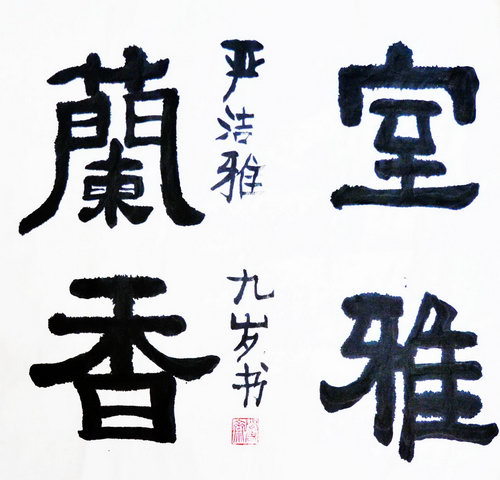 室雅
蘭香
严洁雅
九岁书